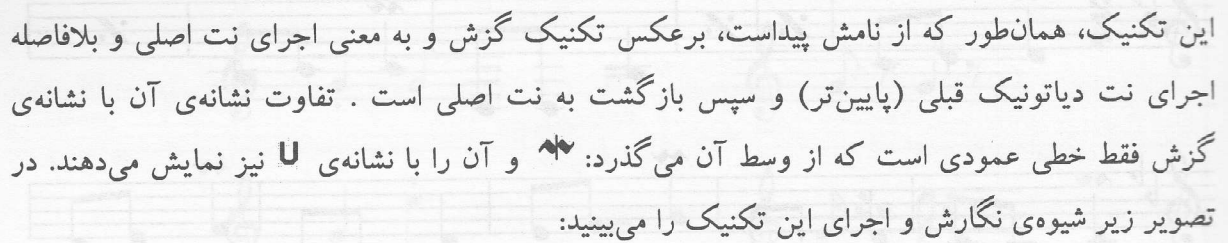 این تکنیک، همان‌طور که از نامش پیداست، برعکس تکنیک گزش و به معنی اجرای نت اصلی و بلافاصله
اجرای نت دیاتونیک قبلی (پایین‌تر) و سپس بازگشت به نت اصلی است . تفاوت نشانه‌ی آن با نشانه‌ی
گزش فقط خطی عمودی است که از وسط آن می‌گذرد: و آن را با نشانه‌ی U نیز نمایش می‌دهند. در
تصویر زیر شیوه‌ی نگارش و اجرای این تکنیک را می‌بینید: